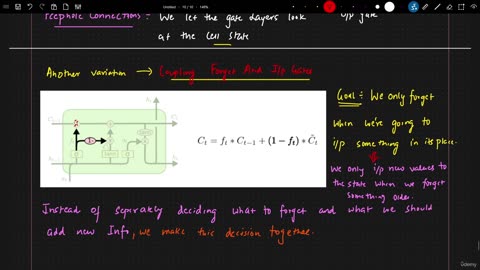 Untitled - 10 / 10 - 148%
Peephole Connections : We let the gate layers look
at the Cell State
i/p gate
Another variation → Coupling Forget And I/p Gates
Goal : We only forget
when we're going to
i/p something in its place.
We only i/p new values to
the state when we forget
something older.
C_t = f_t * C_{t-1} + (1 − f_t) * C̃_t
Instead of seprately deciding what to forget and what we should
add new Info, we make this decision together.
Udemy